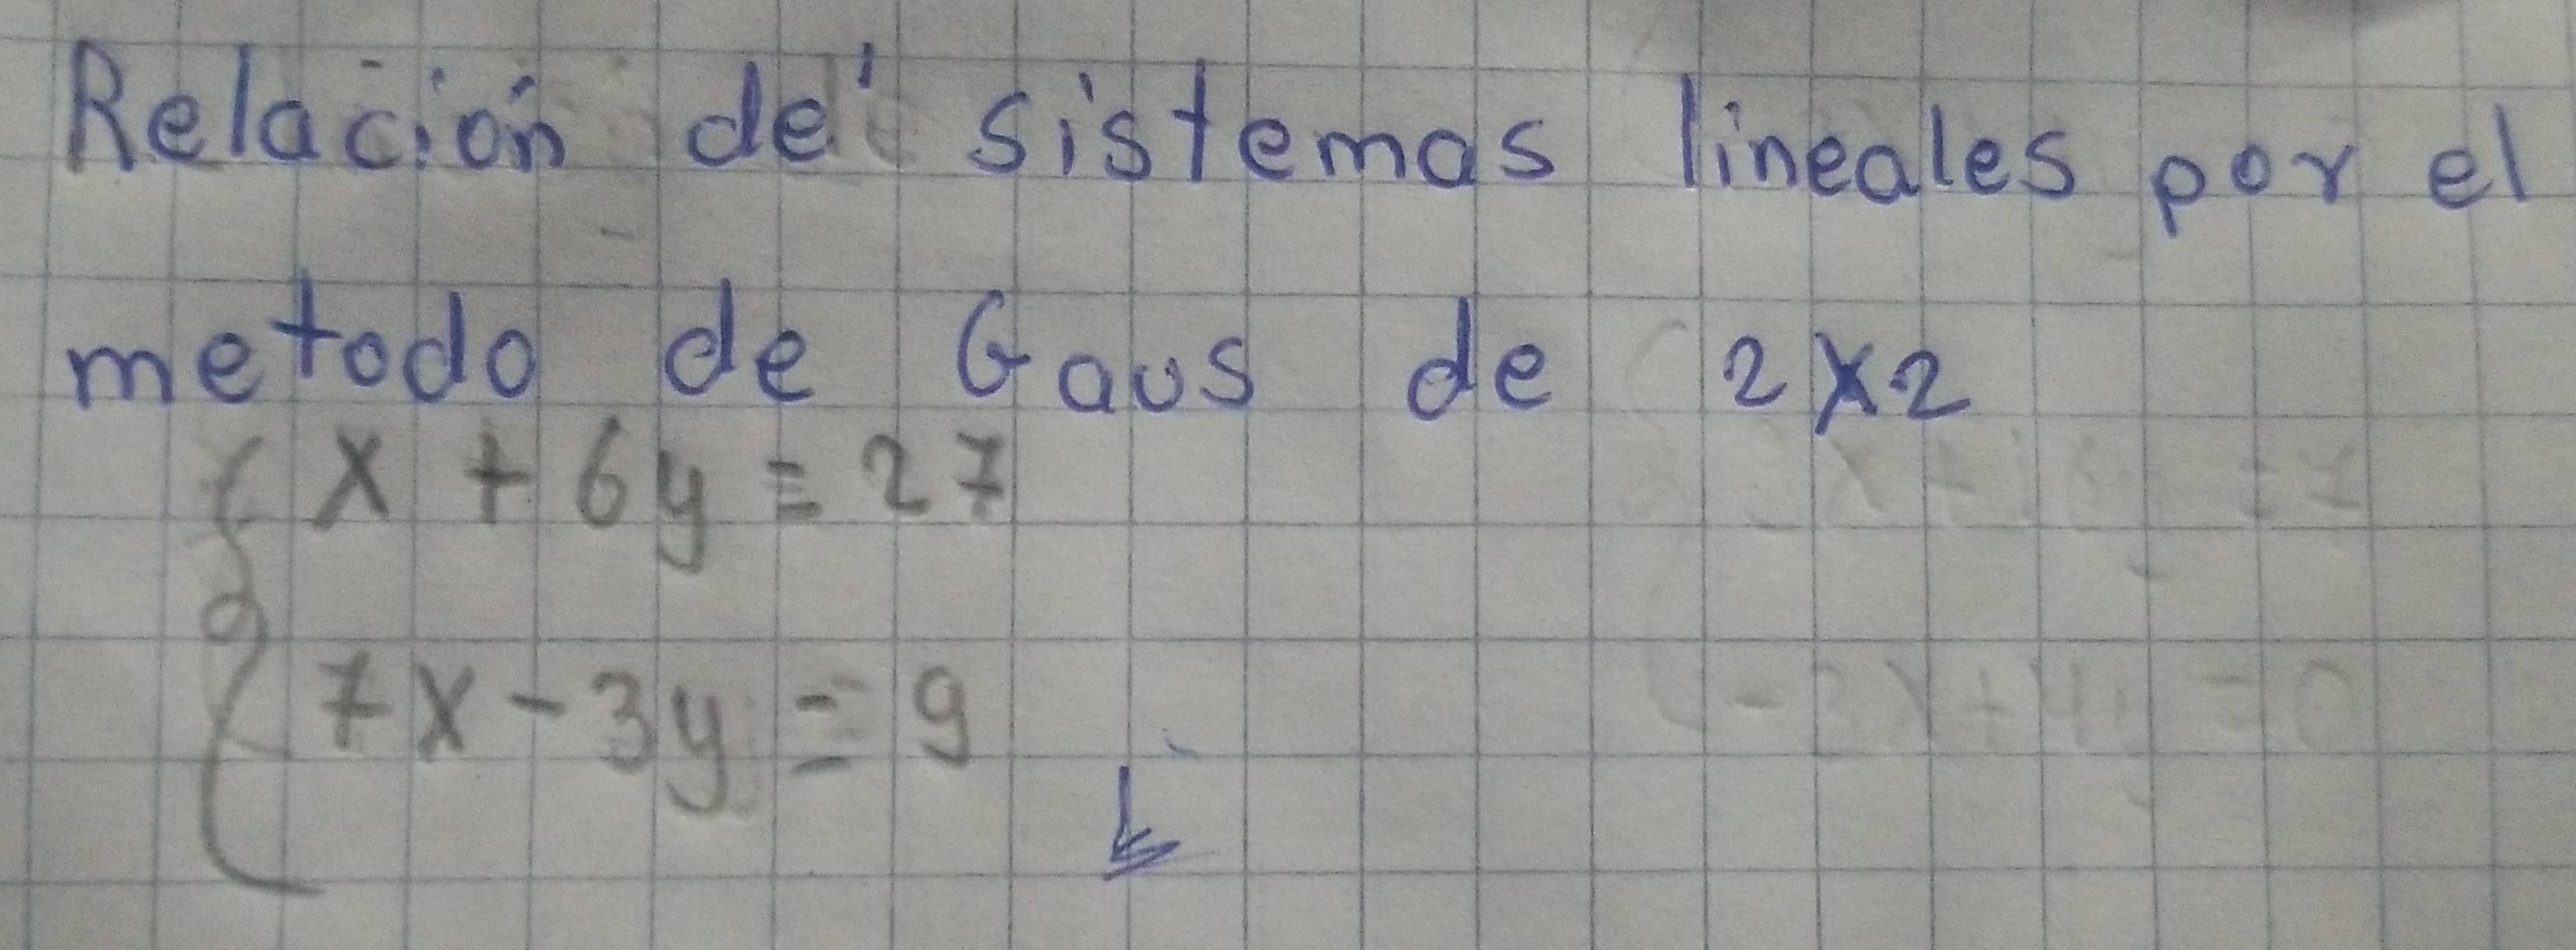 Relación de sistemas lineales por el
metodo de Gaus de 2x2
x + 6y = 27
7x - 3y = 9